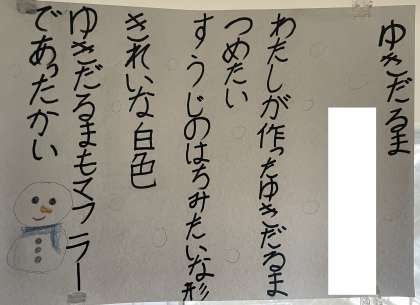 ゆきだるま
わたしが作ったゆきだるま
つめたい
すうじのはちみたいな形
きれいな白色
ゆきだるまもマフラー
であったかい